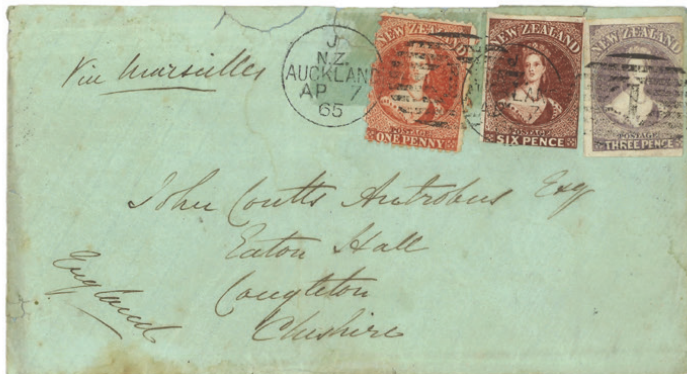 Via Marseilles
J
N.Z.
AUCKLAND
AP 7
65
NEW ZEALAND
POSTAGE
ONE PENNY
NEW ZEALAND
POSTAGE
SIX PENCE
NEW ZEALAND
POSTAGE
THREE PENCE
John Coutts Antrobus Esq
Eaton Hall
Congleton
Cheshire
England